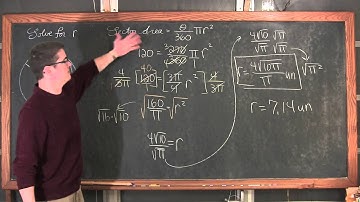 Solve for r
Sector Area = θ/360 πr²
120 = 270/360 π r²
4/3π [120] = [3π/4 r²] 4/3π
√16·√10 √160/π = √r²
4√10/√π = r
4√10/√π √π/√π
r = 4√10π/π un
√π²
r = 7.14 un